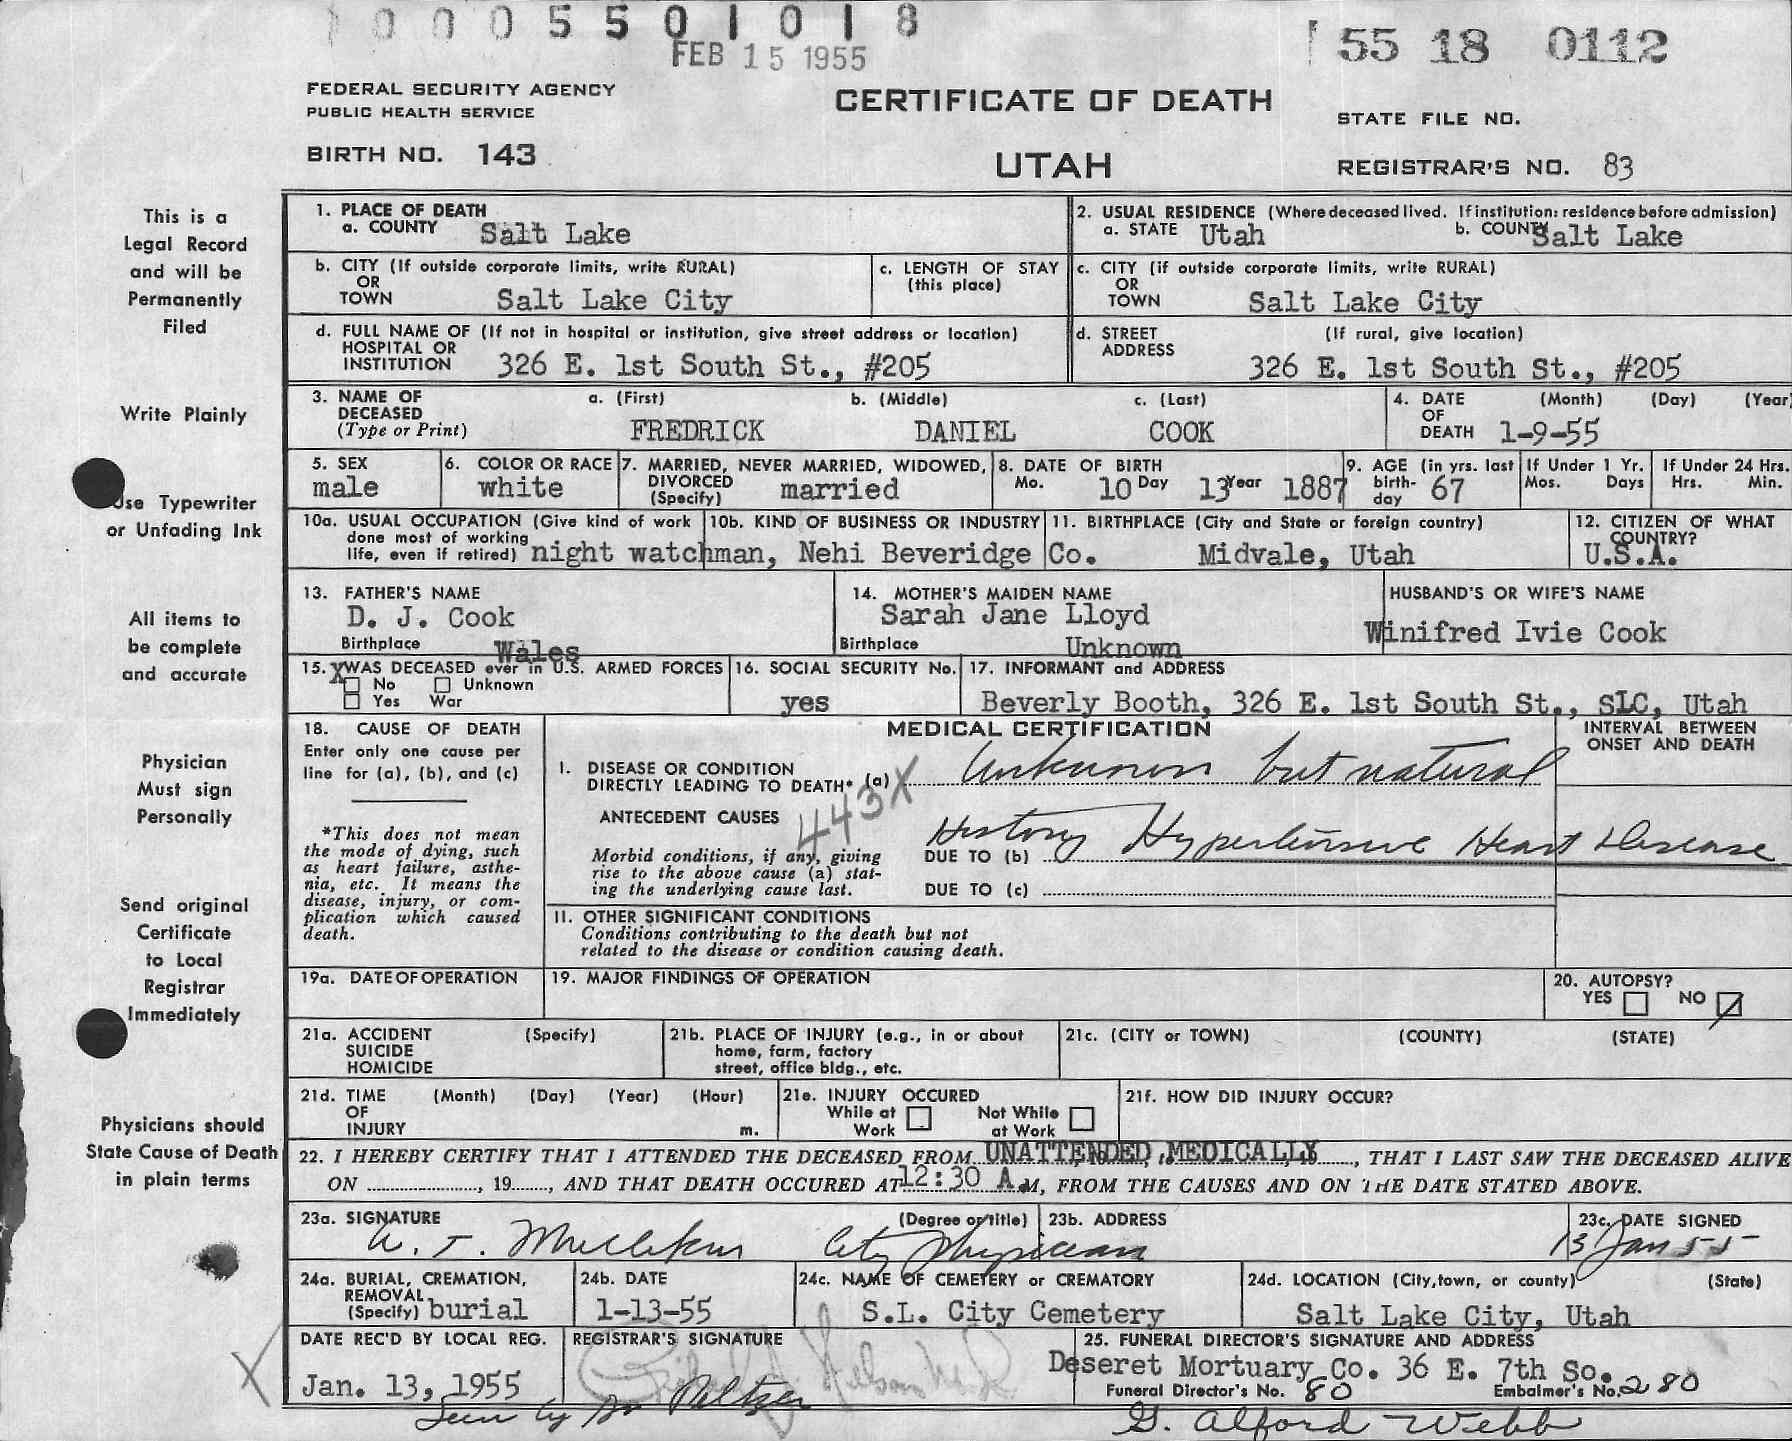 1000 5 5 0 1 0 1 8
FEB 15 1955
55 18 0112
FEDERAL SECURITY AGENCY
PUBLIC HEALTH SERVICE
CERTIFICATE OF DEATH
STATE FILE NO.
BIRTH NO. 143
UTAH
REGISTRAR'S NO. 83
This is a
Legal Record
and will be
Permanently
Filed
Write Plainly
Use Typewriter
or Unfading Ink
All items to
be complete
and accurate
Physician
Must sign
Personally
Send original
Certificate
to Local
Registrar
Immediately
Physicians should
State Cause of Death
in plain terms
1. PLACE OF DEATH
a. COUNTY Salt Lake
2. USUAL RESIDENCE (Where deceased lived. If institution: residence before admission)
a. STATE Utah b. COUNTY Salt Lake
b. CITY (If outside corporate limits, write RURAL)
OR
TOWN Salt Lake City
c. LENGTH OF STAY
(this place)
c. CITY (if outside corporate limits, write RURAL)
OR
TOWN Salt Lake City
d. FULL NAME OF (If not in hospital or institution, give street address or location)
HOSPITAL OR
INSTITUTION 326 E. 1st South St., #205
d. STREET (If rural, give location)
ADDRESS
326 E. 1st South St., #205
3. NAME OF a. (First) b. (Middle) c. (Last)
DECEASED
(Type or Print) FREDRICK DANIEL COOK
4. DATE (Month) (Day) (Year)
OF
DEATH 1-9-55
5. SEX
male
6. COLOR OR RACE
white
7. MARRIED, NEVER MARRIED, WIDOWED,
DIVORCED
(Specify) married
8. DATE OF BIRTH
Mo. 10 Day 13 Year 1887
9. AGE (in yrs. last
birth-
day 67
If Under 1 Yr.
Mos. Days
If Under 24 Hrs.
Hrs. Min.
10a. USUAL OCCUPATION (Give kind of work
done most of working
life, even if retired) night watchman, Nehi Beveridge Co.
10b. KIND OF BUSINESS OR INDUSTRY
11. BIRTHPLACE (City and State or foreign country)
Midvale, Utah
12. CITIZEN OF WHAT
COUNTRY?
U.S.A.
13. FATHER'S NAME
D. J. Cook
Birthplace Wales
14. MOTHER'S MAIDEN NAME
Sarah Jane Lloyd
Birthplace Unknown
HUSBAND'S OR WIFE'S NAME
Winifred Ivie Cook
15. WAS DECEASED ever in U.S. ARMED FORCES
X No Unknown
Yes War
16. SOCIAL SECURITY No.
yes
17. INFORMANT and ADDRESS
Beverly Booth, 326 E. 1st South St., SLC, Utah
18. CAUSE OF DEATH
Enter only one cause per
line for (a), (b), and (c)
*This does not mean
the mode of dying, such
as heart failure, asthe-
nia, etc. It means the
disease, injury, or com-
plication which caused
death.
MEDICAL CERTIFICATION
INTERVAL BETWEEN
ONSET AND DEATH
I. DISEASE OR CONDITION
DIRECTLY LEADING TO DEATH* (a) Unknown but natural
443X
ANTECEDENT CAUSES
Morbid conditions, if any, giving
rise to the above cause (a) stat-
ing the underlying cause last.
DUE TO (b) History Hypertensive Heart Disease
DUE TO (c)
II. OTHER SIGNIFICANT CONDITIONS
Conditions contributing to the death but not
related to the disease or condition causing death.
19a. DATE OF OPERATION
19. MAJOR FINDINGS OF OPERATION
20. AUTOPSY?
YES NO
21a. ACCIDENT (Specify)
SUICIDE
HOMICIDE
21b. PLACE OF INJURY (e.g., in or about
home, farm, factory
street, office bldg., etc.
21c. (CITY or TOWN) (COUNTY) (STATE)
21d. TIME (Month) (Day) (Year) (Hour)
OF
INJURY m.
21e. INJURY OCCURED
While at Work Not While at Work
21f. HOW DID INJURY OCCUR?
22. I HEREBY CERTIFY THAT I ATTENDED THE DECEASED FROM UNATTENDED MEDICALLY, THAT I LAST SAW THE DECEASED ALIVE
ON , 19 , AND THAT DEATH OCCURED AT 12:30 A.M, FROM THE CAUSES AND ON THE DATE STATED ABOVE.
23a. SIGNATURE (Degree or title)
City Physician
23b. ADDRESS
23c. DATE SIGNED
13 Jan 55
24a. BURIAL, CREMATION,
REMOVAL
(Specify) burial
24b. DATE
1-13-55
24c. NAME OF CEMETERY or CREMATORY
S.L. City Cemetery
24d. LOCATION (City, town, or county) (State)
Salt Lake City, Utah
DATE REC'D BY LOCAL REG.
Jan. 13, 1955
REGISTRAR'S SIGNATURE
25. FUNERAL DIRECTOR'S SIGNATURE AND ADDRESS
Deseret Mortuary Co. 36 E. 7th So.
Funeral Director's No. 80 Embalmer's No. 280
X
Seen by Dr Peltzer
G. Alford Webb